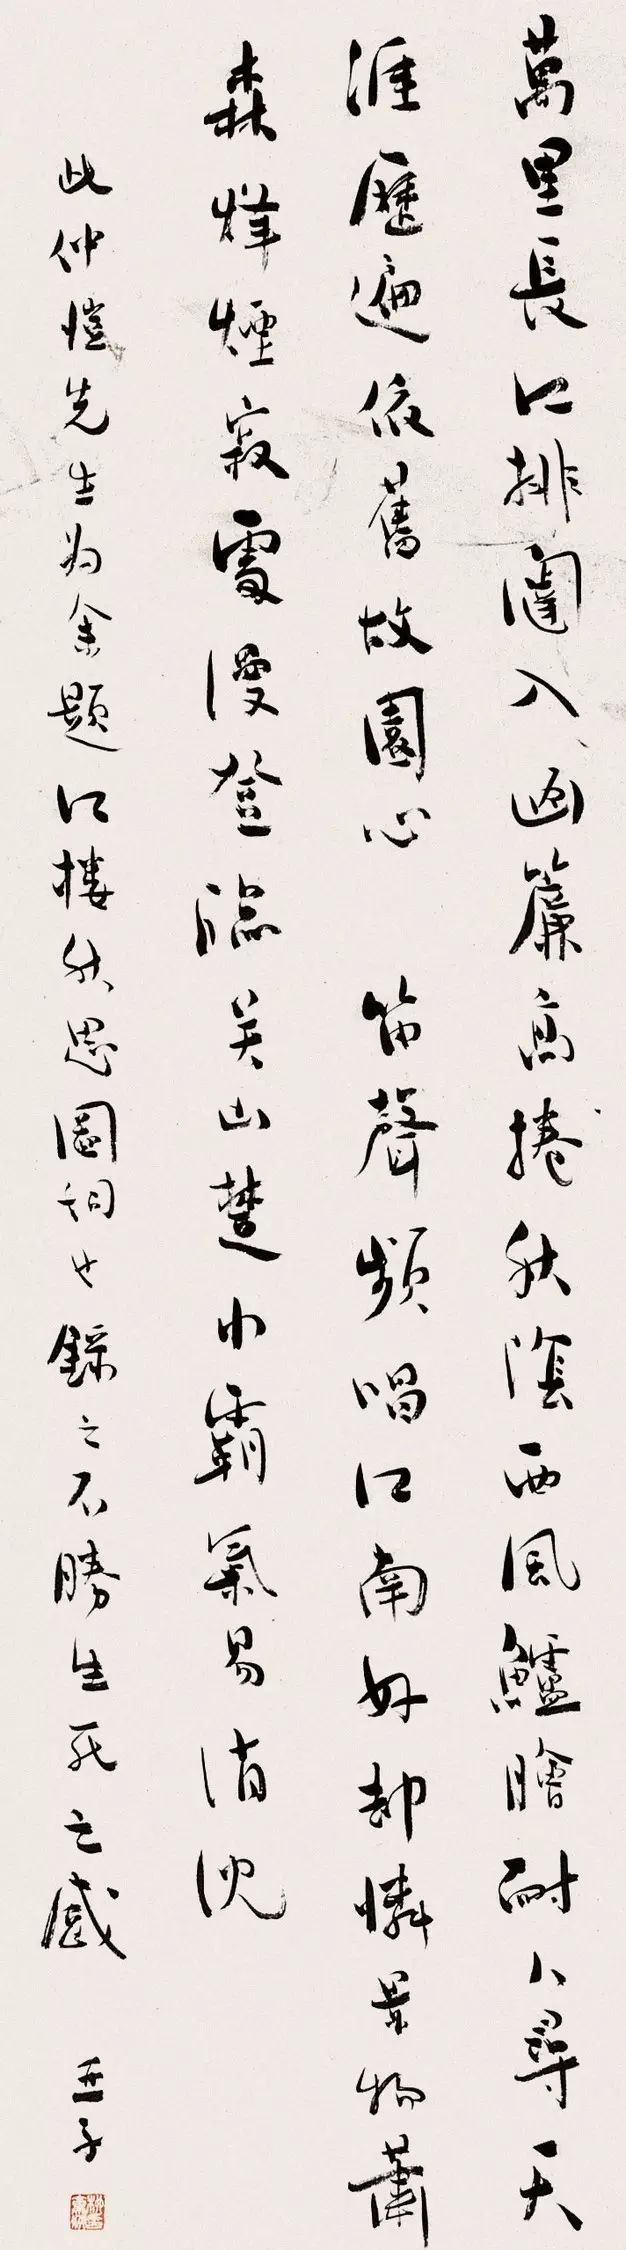 萬里長江排闥入画簾高捲秋陰西風鱸膾耐人尋天
涯歷遍依舊故園心 笛聲頻唱江南好却憐景物蕭
森烽煙寂處漫登臨关山楚水霸氣易消沈
此仲愷先生为余題江樓秋思圖詞也錄之不勝生死之感
亚子